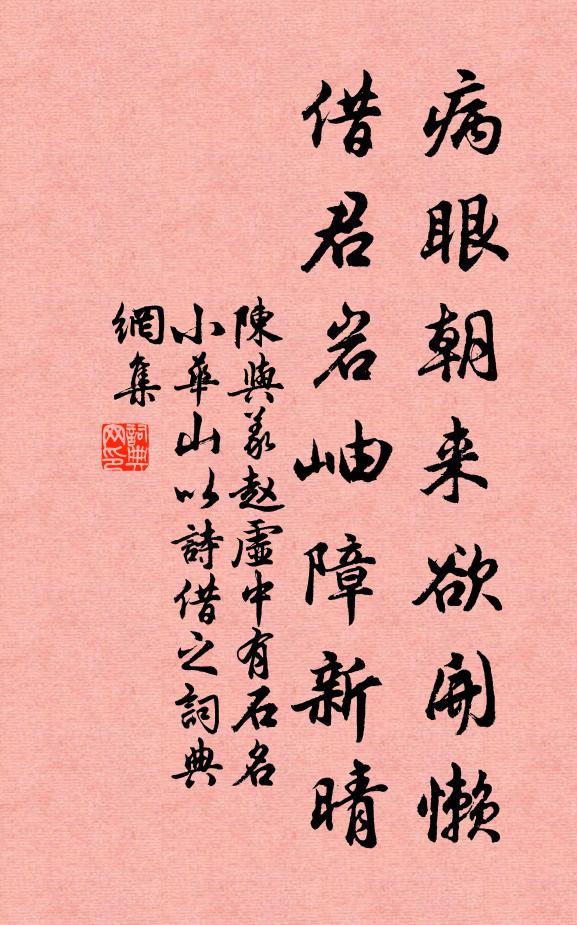 病眼朝来欲開懶
借君岩岫障新晴
陳與義赵虛中有石名
小華山以詩借之詞典
網集
詞典
网印